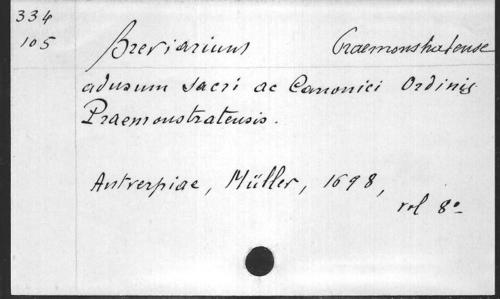 334
105
Breviarium Praemonstratense
ad usum sacri ac Canonici Ordinis
Praemonstratensis.
Antverpiae, Müller, 1698,
vol 8º